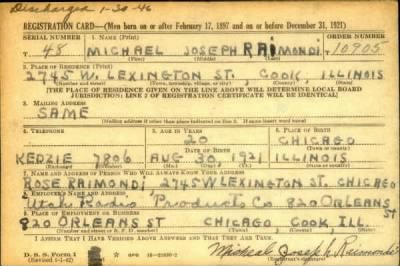 Discharged 1-30-46
REGISTRATION CARD—(Men born on or after February 17, 1897 and on or before December 31, 1921)
SERIAL NUMBER 1. NAME (Print) ORDER NUMBER
T 48 MICHAEL JOSEPH RAIMONDI 10905
(First) (Middle) (Last)
2. PLACE OF RESIDENCE (Print)
2745 W. LEXINGTON ST., COOK, ILLINOIS
(Number and street) (Town, township, village, or city) (County) (State)
[THE PLACE OF RESIDENCE GIVEN ON THE LINE ABOVE WILL DETERMINE LOCAL BOARD
JURISDICTION; LINE 2 OF REGISTRATION CERTIFICATE WILL BE IDENTICAL]
3. MAILING ADDRESS
SAME
[Mailing address if other than place indicated on line 2. If same insert word same]
4. TELEPHONE 5. AGE IN YEARS 6. PLACE OF BIRTH
20 CHICAGO
DATE OF BIRTH (Town or county)
KEDZIE 7806 AUG 30, 1921 ILLINOIS
(Exchange) (Number) (Mo.) (Day) (Yr.) (State or country)
7. NAME AND ADDRESS OF PERSON WHO WILL ALWAYS KNOW YOUR ADDRESS
ROSE RAIMONDI, 2745 W LEXINGTON ST. CHICAGO
8. EMPLOYER'S NAME AND ADDRESS
Utah Radio Products Co 820 ORLEANS
9. PLACE OF EMPLOYMENT OR BUSINESS
820 ORLEANS ST CHICAGO, COOK, ILL.
(Number and street or R. F. D. number) (Town) (County) (State)
I AFFIRM THAT I HAVE VERIFIED ABOVE ANSWERS AND THAT THEY ARE TRUE.
D. S. S. Form 1
(Revised 1-1-42) GPO 16-21630-2
Micheal Joseph Raimondi
(Registrant's signature)